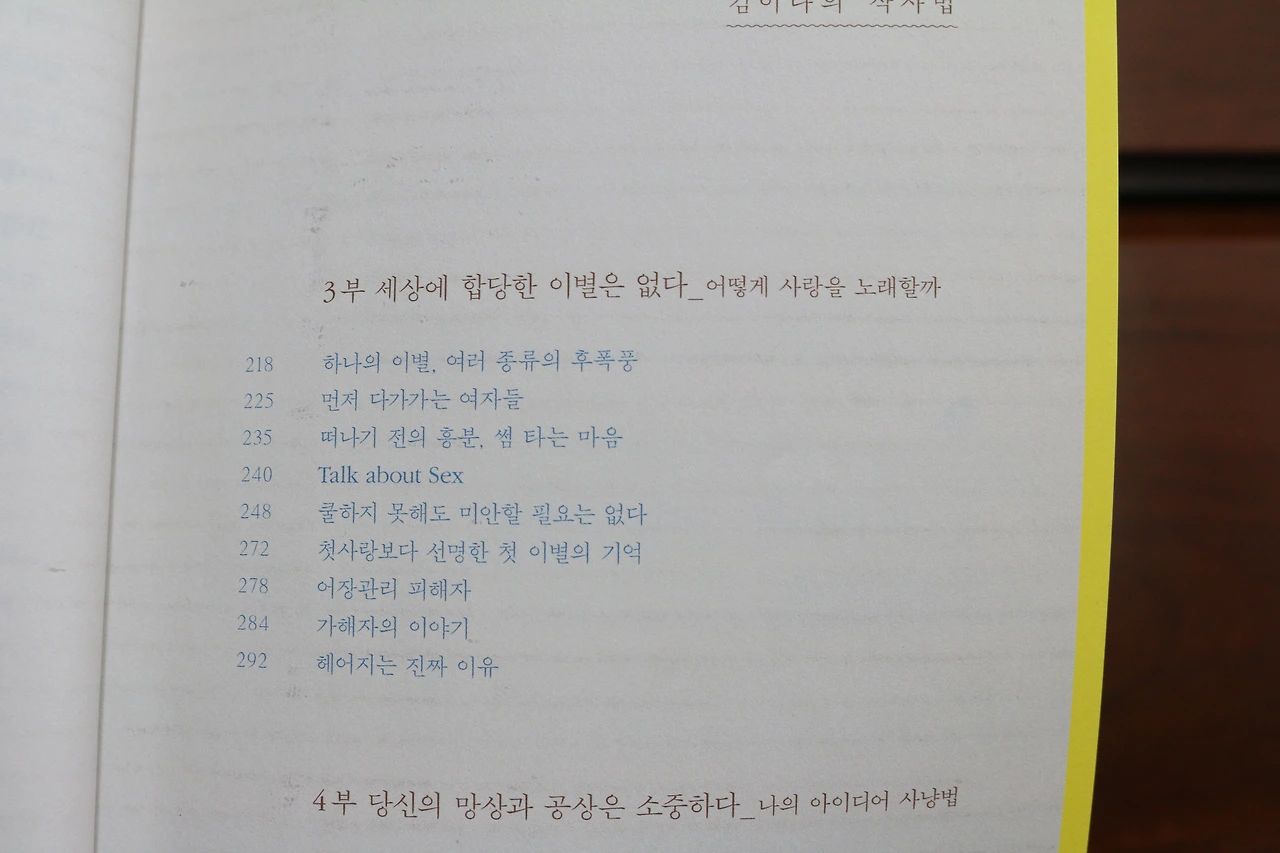 김이나의 작사법
3부 세상에 합당한 이별은 없다_어떻게 사랑을 노래할까
218 하나의 이별, 여러 종류의 후폭풍
225 먼저 다가가는 여자들
235 떠나기 전의 흥분, 썸 타는 마음
240 Talk about Sex
248 쿨하지 못해도 미안할 필요는 없다
272 첫사랑보다 선명한 첫 이별의 기억
278 어장관리 피해자
284 가해자의 이야기
292 헤어지는 진짜 이유
4부 당신의 망상과 공상은 소중하다_나의 아이디어 사냥법